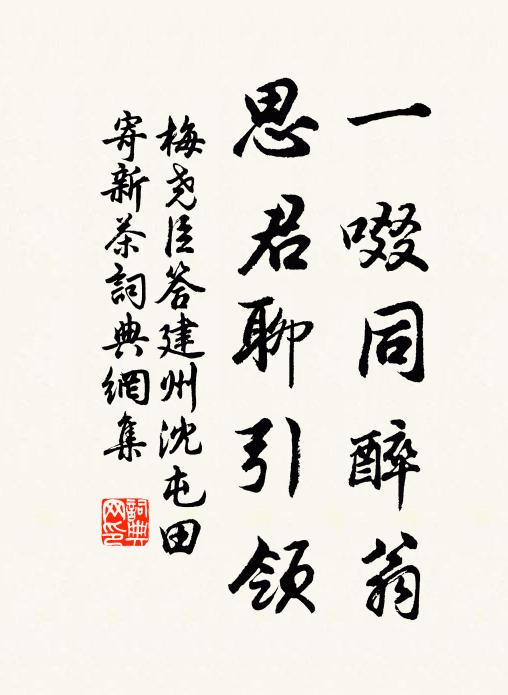 一啜同醉翁
思君聊引領
梅尧臣答建州沈屯田
寄新茶詞典網集
詞典
网印